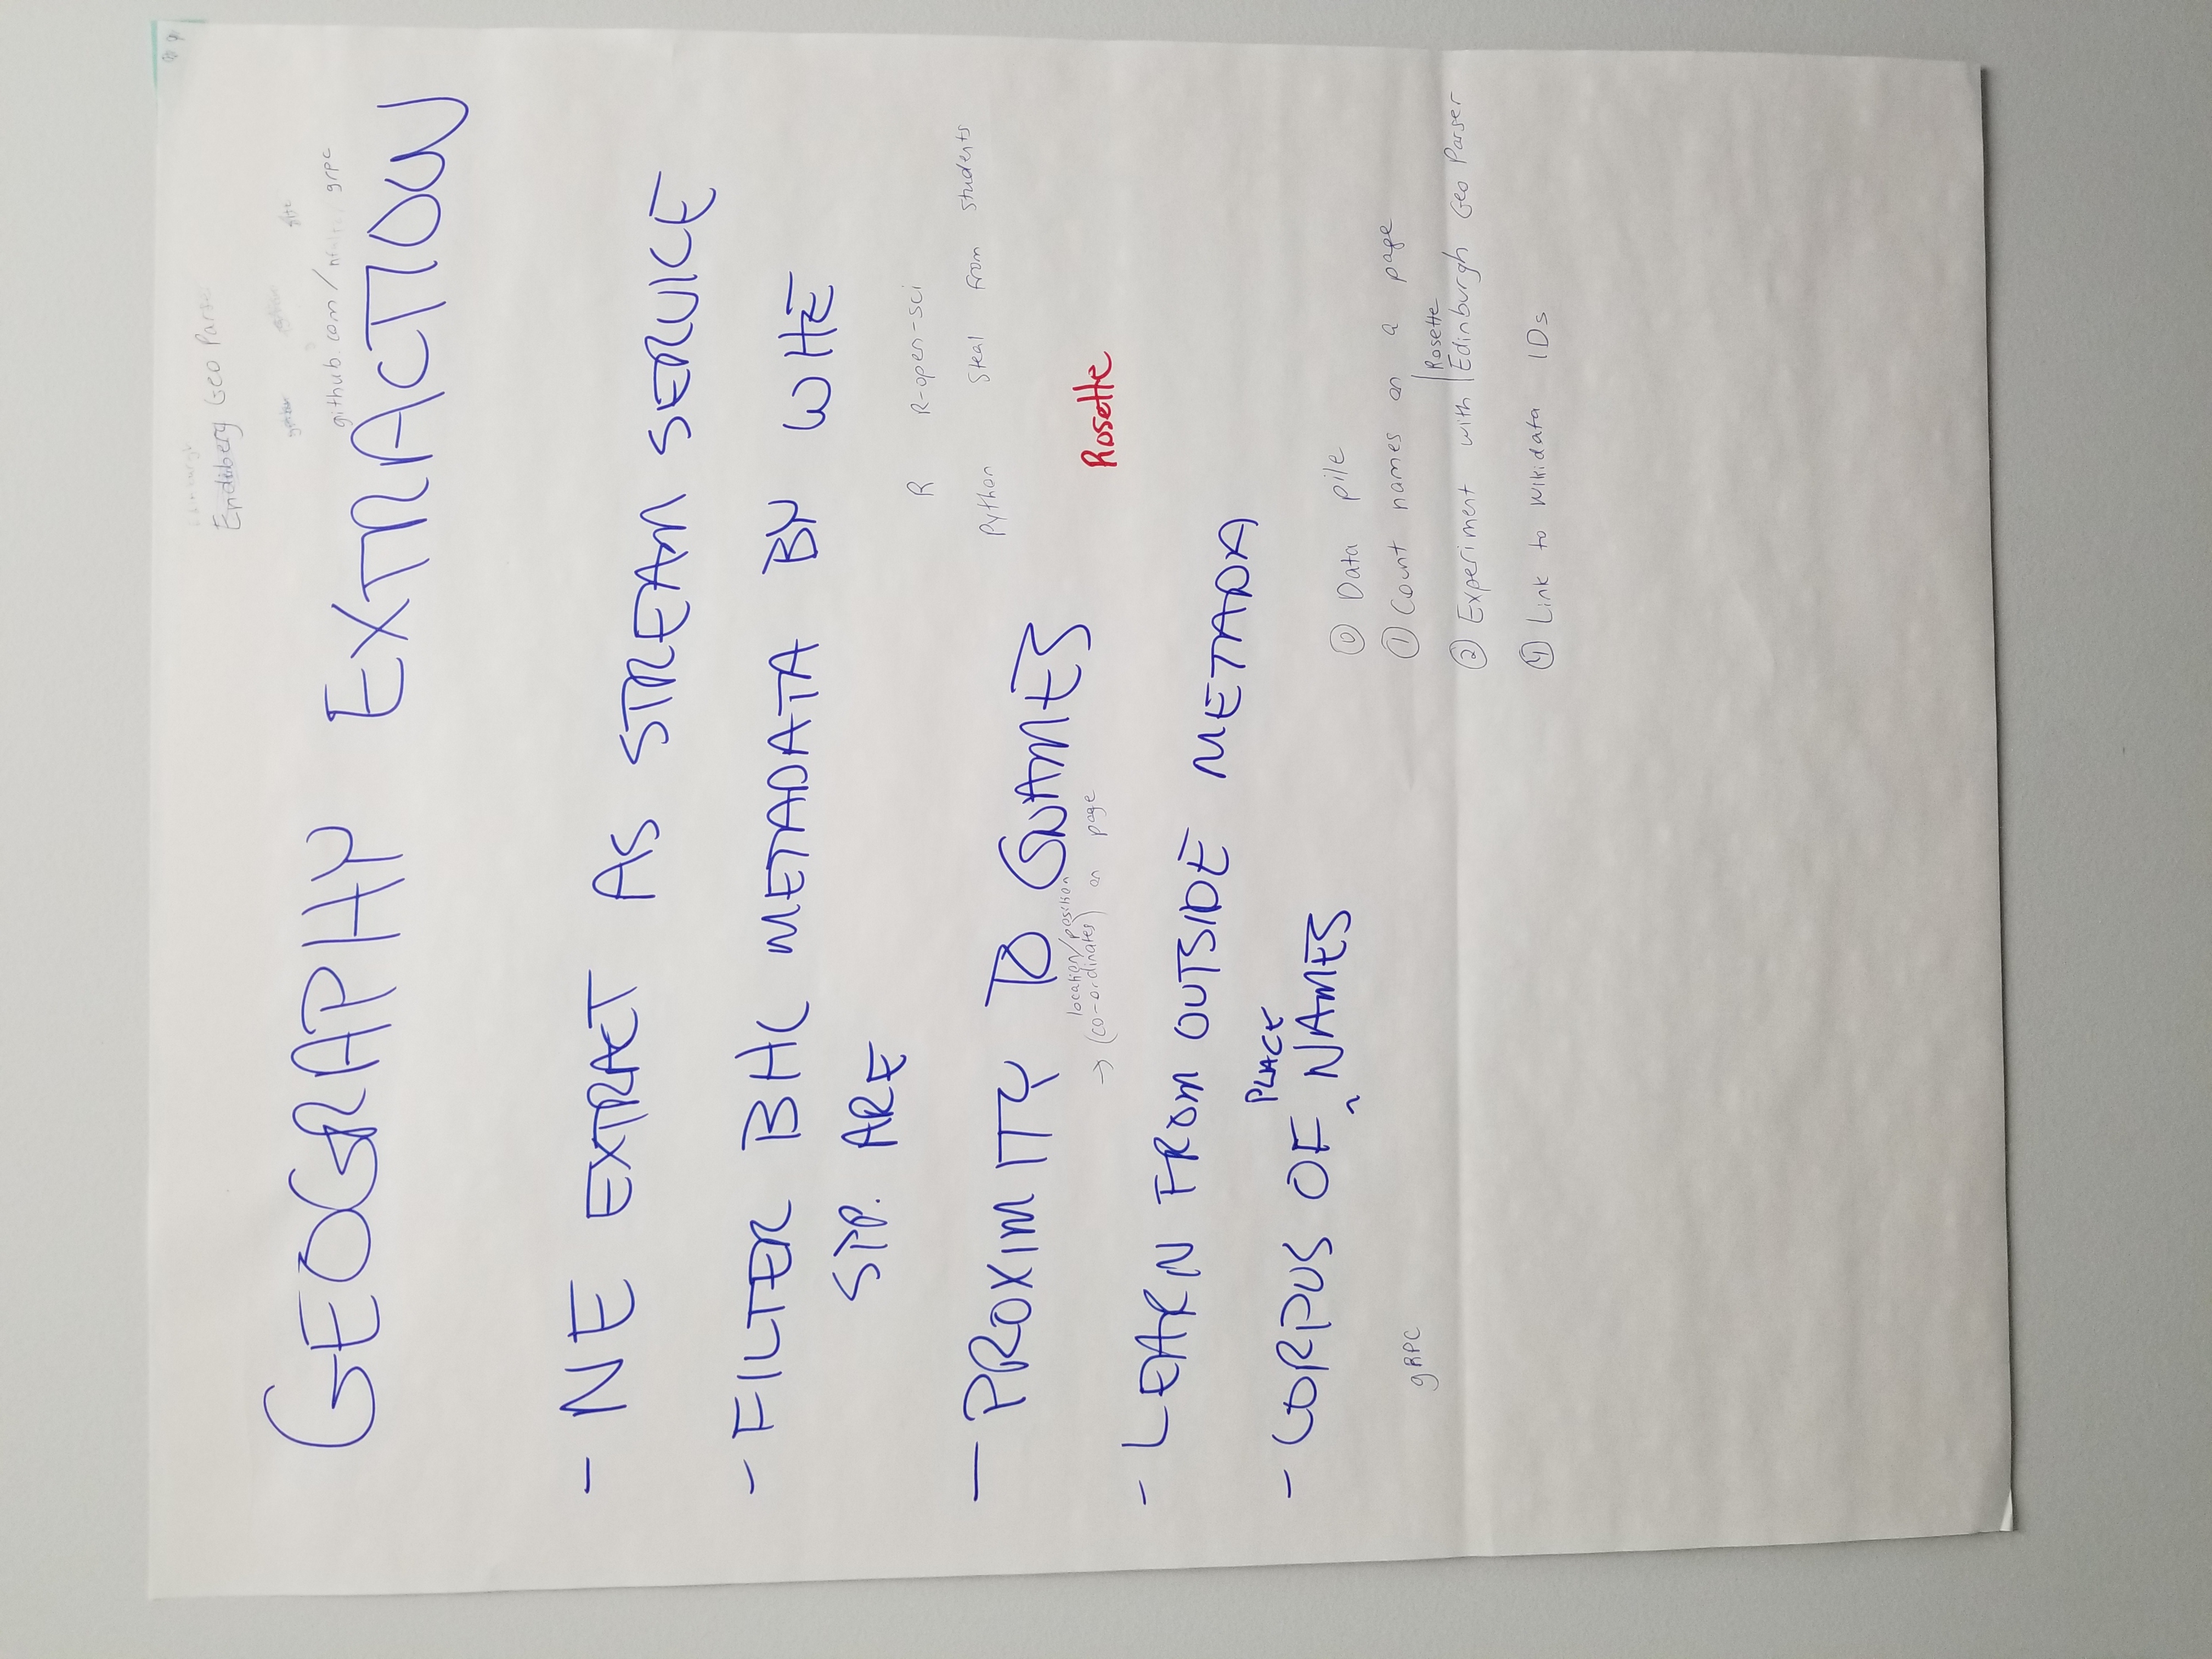 Edinburgh
Endiberg Geo Parse
github.com/ grpc
GEOGRAPHY EXTRACTION
- NE EXTRACT AS STREAM SERVICE
- FILTER BHL METADATA BY WHE
SPP. ARE
R R-open-sci
Python Steal from students
- PROXIMITY TO GNAMES
location/position
→ (co-ordinates) on page
Rosette
- LEARN FROM OUTSIDE METADA
PLACE
- CORPUS OF ^ NAMES
gRPC
⓪ Data pile
① Count names on a page
Rosette
② Experiment with Edinburgh Geo Parser
④ Link to Wikidata IDs